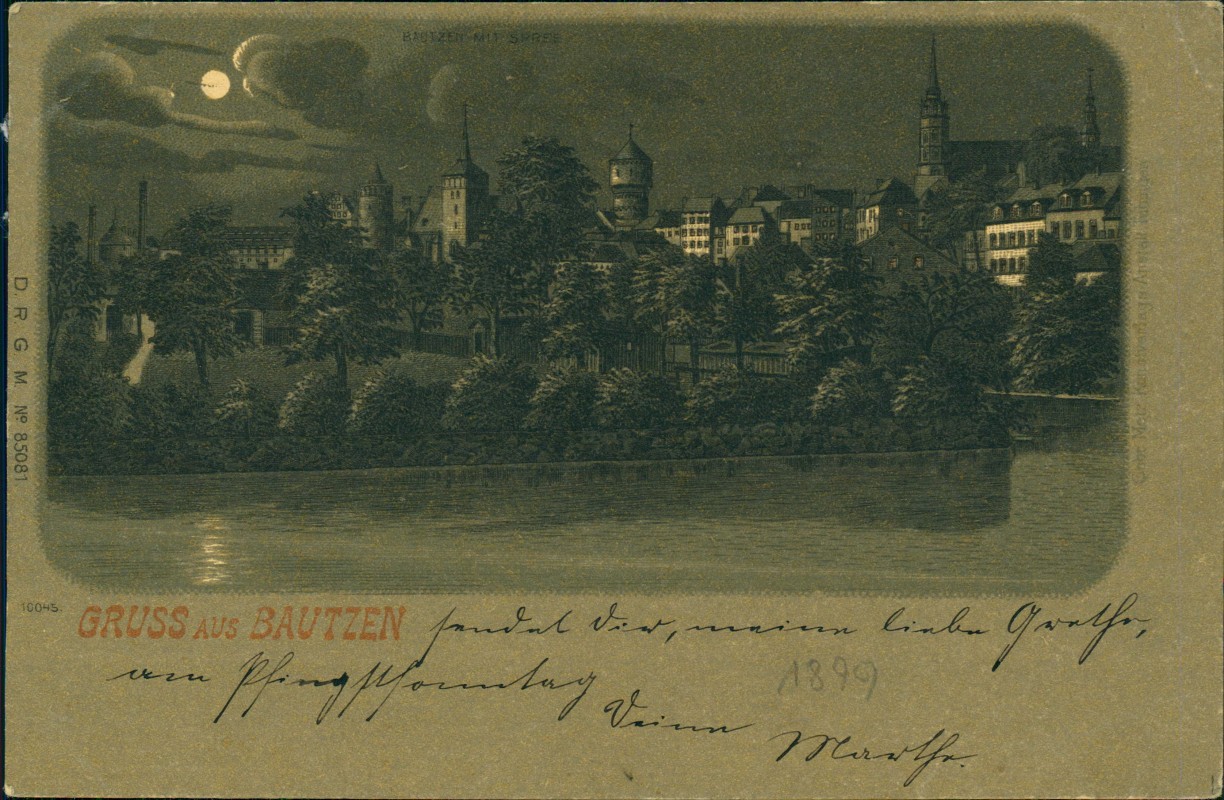 BAUTZEN MIT SPREE
D. R. G. M. Nº 85081
10045.
GRUSS AUS BAUTZEN sendet Dir, meine liebe Grethe,
am Pfingstsonntag
1899
Deine
Marthe.